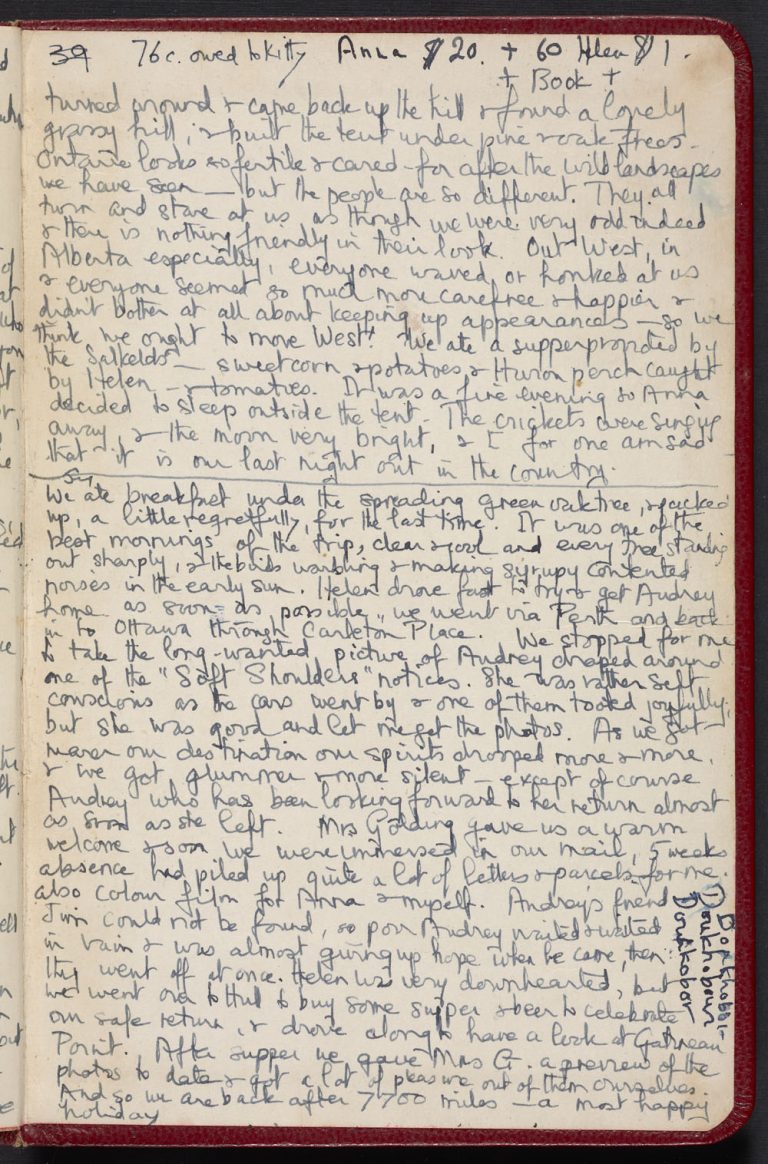 39 76c. owed to Kitty Anna $20. + 60 Helen $1.
+ Book +
turned around & came back up the hill & found a lovely
grassy hill, & built the tent under pine & oak trees.
Ontario looks so fertile & cared-for after the wild landscapes
we have seen — but the people are so different. They all
turn and stare at us as though we were very odd indeed
& there is nothing friendly in their look. Out West, in
Alberta especially, everyone waved or honked at us
& everyone seemed so much more carefree & happier &
didn't bother at all about keeping up appearances — so we
think we ought to move West! We ate a supper provided by
the Salkelds — sweetcorn & potatoes, & Huron perch caught
by Helen — & tomatoes. It was a fine evening so Anna
decided to sleep outside the tent. The crickets were singing
away, & the moon very bright, & I for one am sad
that it is our last night out in the country.
We ate breakfast under the spreading green oak tree, & packed
up, a little regretfully, for the last time. It was one of the
best mornings of the trip, clear & cool and every tree standing
out sharply, & the birds warbling & making syrupy contented
noises in the early sun. Helen drove fast to try & get Audrey
home as soon as possible, we went via Perth and back
in to Ottawa through Carleton Place. We stopped for me
to take the long-wanted picture of Audrey draped around
one of the "Soft Shoulders" notices. She was rather self
conscious as the cars went by & one of them tooted joyfully,
but she was good and let me get the photos. As we got
nearer our destination our spirits dropped more & more,
& we got glummer & more silent — except of course
Audrey who has been looking forward to her return almost
as soon as she left. Mrs Golding gave us a warm
welcome & soon we were immersed in our mail, 5 weeks
absence had piled up quite a lot of letters & parcels for me.
also colour film for Anna & myself. Audrey's friend
Jim could not be found, so poor Audrey waited & waited
in vain & was almost giving up hope when he came, then
they went off at once. Helen was very downhearted, but
we went over to Hull to buy some supper & beer to celebrate
our safe return, & drove along to have a look at Gatineau
Point. After supper we gave Mrs G. a preview of the
photos to date & got a lot of pleasure out of them ourselves.
And so we are back after 7700 miles — a most happy
holiday
Doukhobour
Doukobor